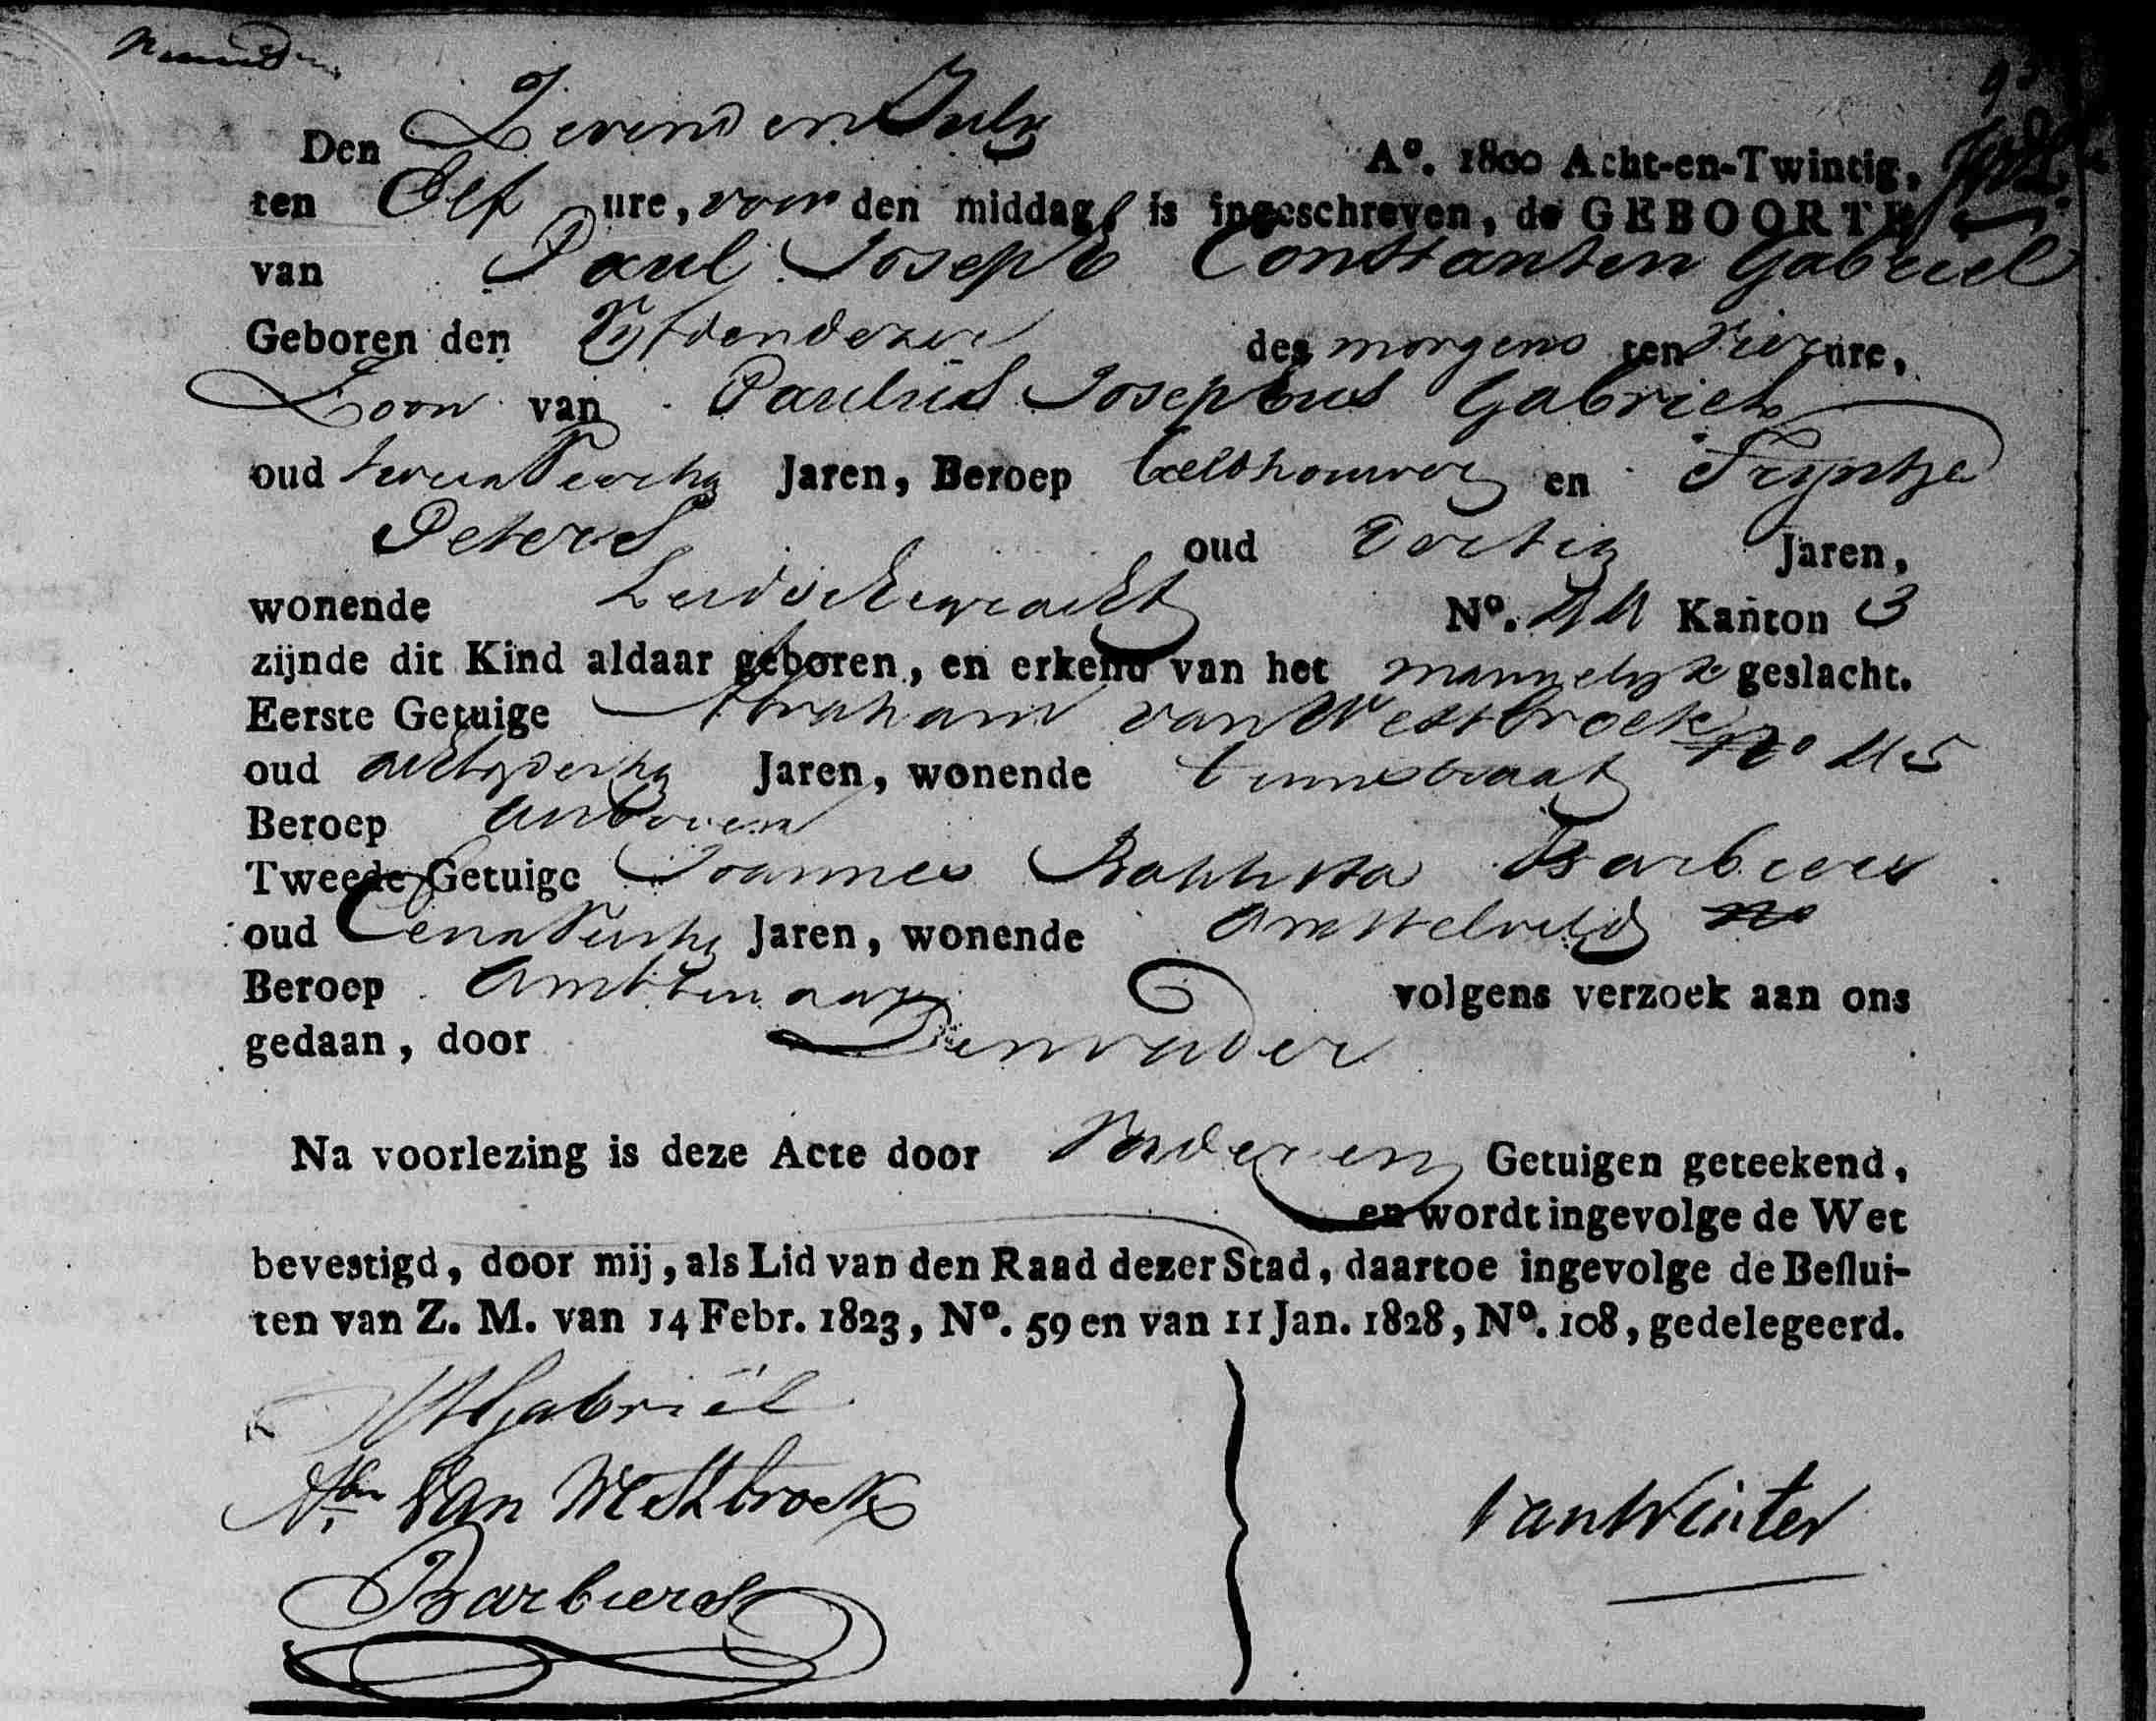 Den Zevenden July A°. 1800 Acht-en-Twintig,
ten Elf ure, voor den middag is ingeschreven, de GEBOORTE
van Paul Joseph Constantin Gabriel
Geboren den Vyfdendezer des morgens ten vier ure,
Zoon van Paulus Josephus Gabriel
oud Jaren, Beroep beeldhouwer en Tryntje
Peters oud Dertig Jaren,
wonende Leidschegracht N°. Kanton 3
zijnde dit Kind aldaar geboren, en erkend van het mannelyke geslacht.
Eerste Getuige Abraham van Westbroek N°
oud Jaren, wonende
Beroep
Tweede Getuige Joannes Baptista Barbiers
oud Jaren, wonende Amstelveld
Beroep Ambtenaar volgens verzoek aan ons
gedaan, door Denvader
Na voorlezing is deze Acte door Vader en Getuigen geteekend,
en wordt ingevolge de Wet
bevestigd, door mij, als Lid van den Raad dezer Stad, daartoe ingevolge de Beslui-
ten van Z. M. van 14 Febr. 1823, N°. 59 en van 11 Jan. 1828, N°. 108, gedelegeerd.
Gabriël
Abm. Van Westbroek
VanWinter
Barbiers